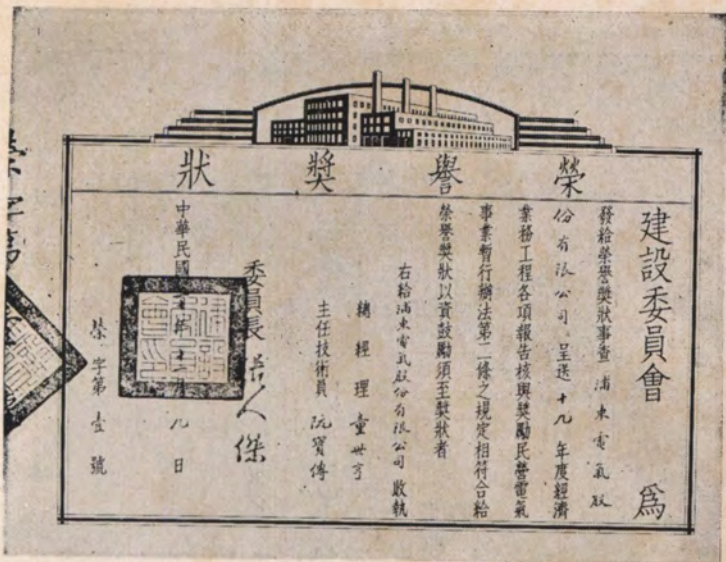 榮譽獎狀
建設委員會 為
發給榮譽獎狀事查 浦東電氣股
份有限公司 呈送 十九 年度經濟
業務工程各項報告核與獎勵民營電氣
事業暫行辦法第二條之規定相符合給
榮譽獎狀以資鼓勵須至獎狀者
右給浦東電氣股份有限公司 收執
總經理 童世亨
主任技術員 阮寶傳
委員長 張人傑
中華民國 年十二月 九 日
榮字第 壹 號
榮字第